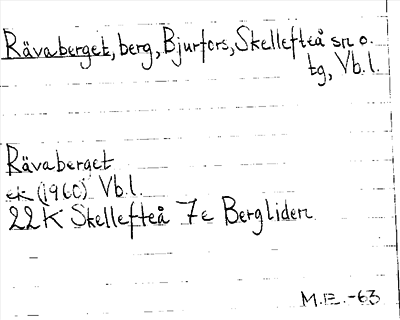 Rävaberget, berg, Bjurfors, Skellefteå sn o.
tg, Vb.l.
Rävaberget
ek (1960) Vb.l.
22K Skellefteå 7e Bergliden
M.E.-63